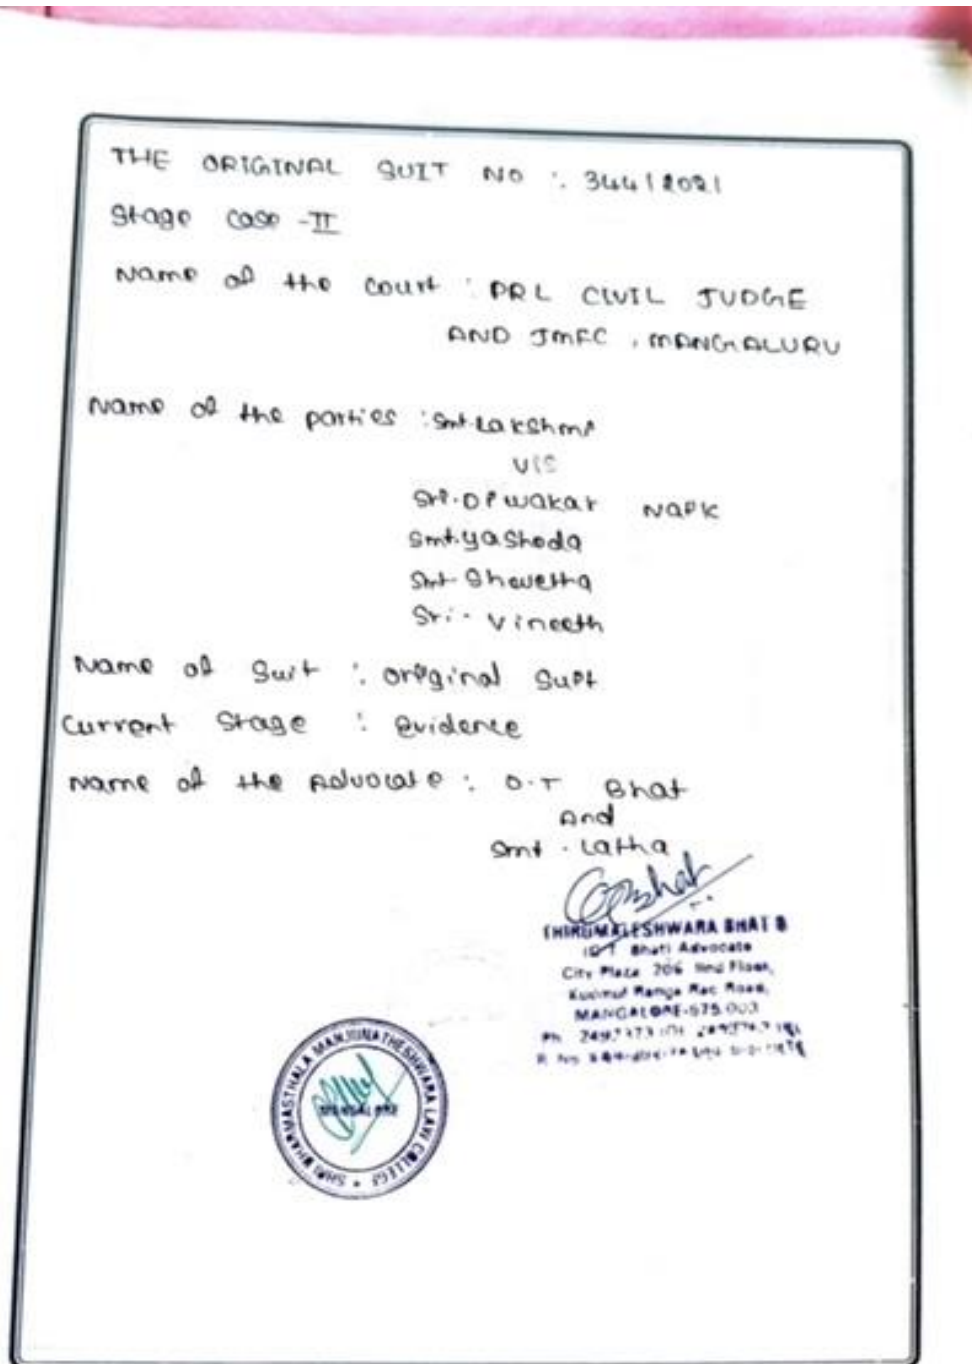 THE ORIGINAL SUIT NO : 344/2021
Stage case -II
Name of the court : PRL CIVIL JUDGE
AND JMFC , MANGALURU
Name of the parties : Smt.Lakshmi
V/S
Sri.Diwakar Naik
Smt.yashoda
Smt.Shwetha
Sri. Vineeth
Name of Suit : original Suit
Current Stage : Evidence
Name of the Advocate : O.T Bhat
And
Smt . Latha
THIRUMALESHWARA BHAT B
Bhat) Advocate
City Plaza 206 IInd Floor,
Range Rao Road,
MANGALORE-575 003
Ph
SHRI DHARMASTHALA MANJUNATHESHWARA LAW COLLEGE
MANGALORE